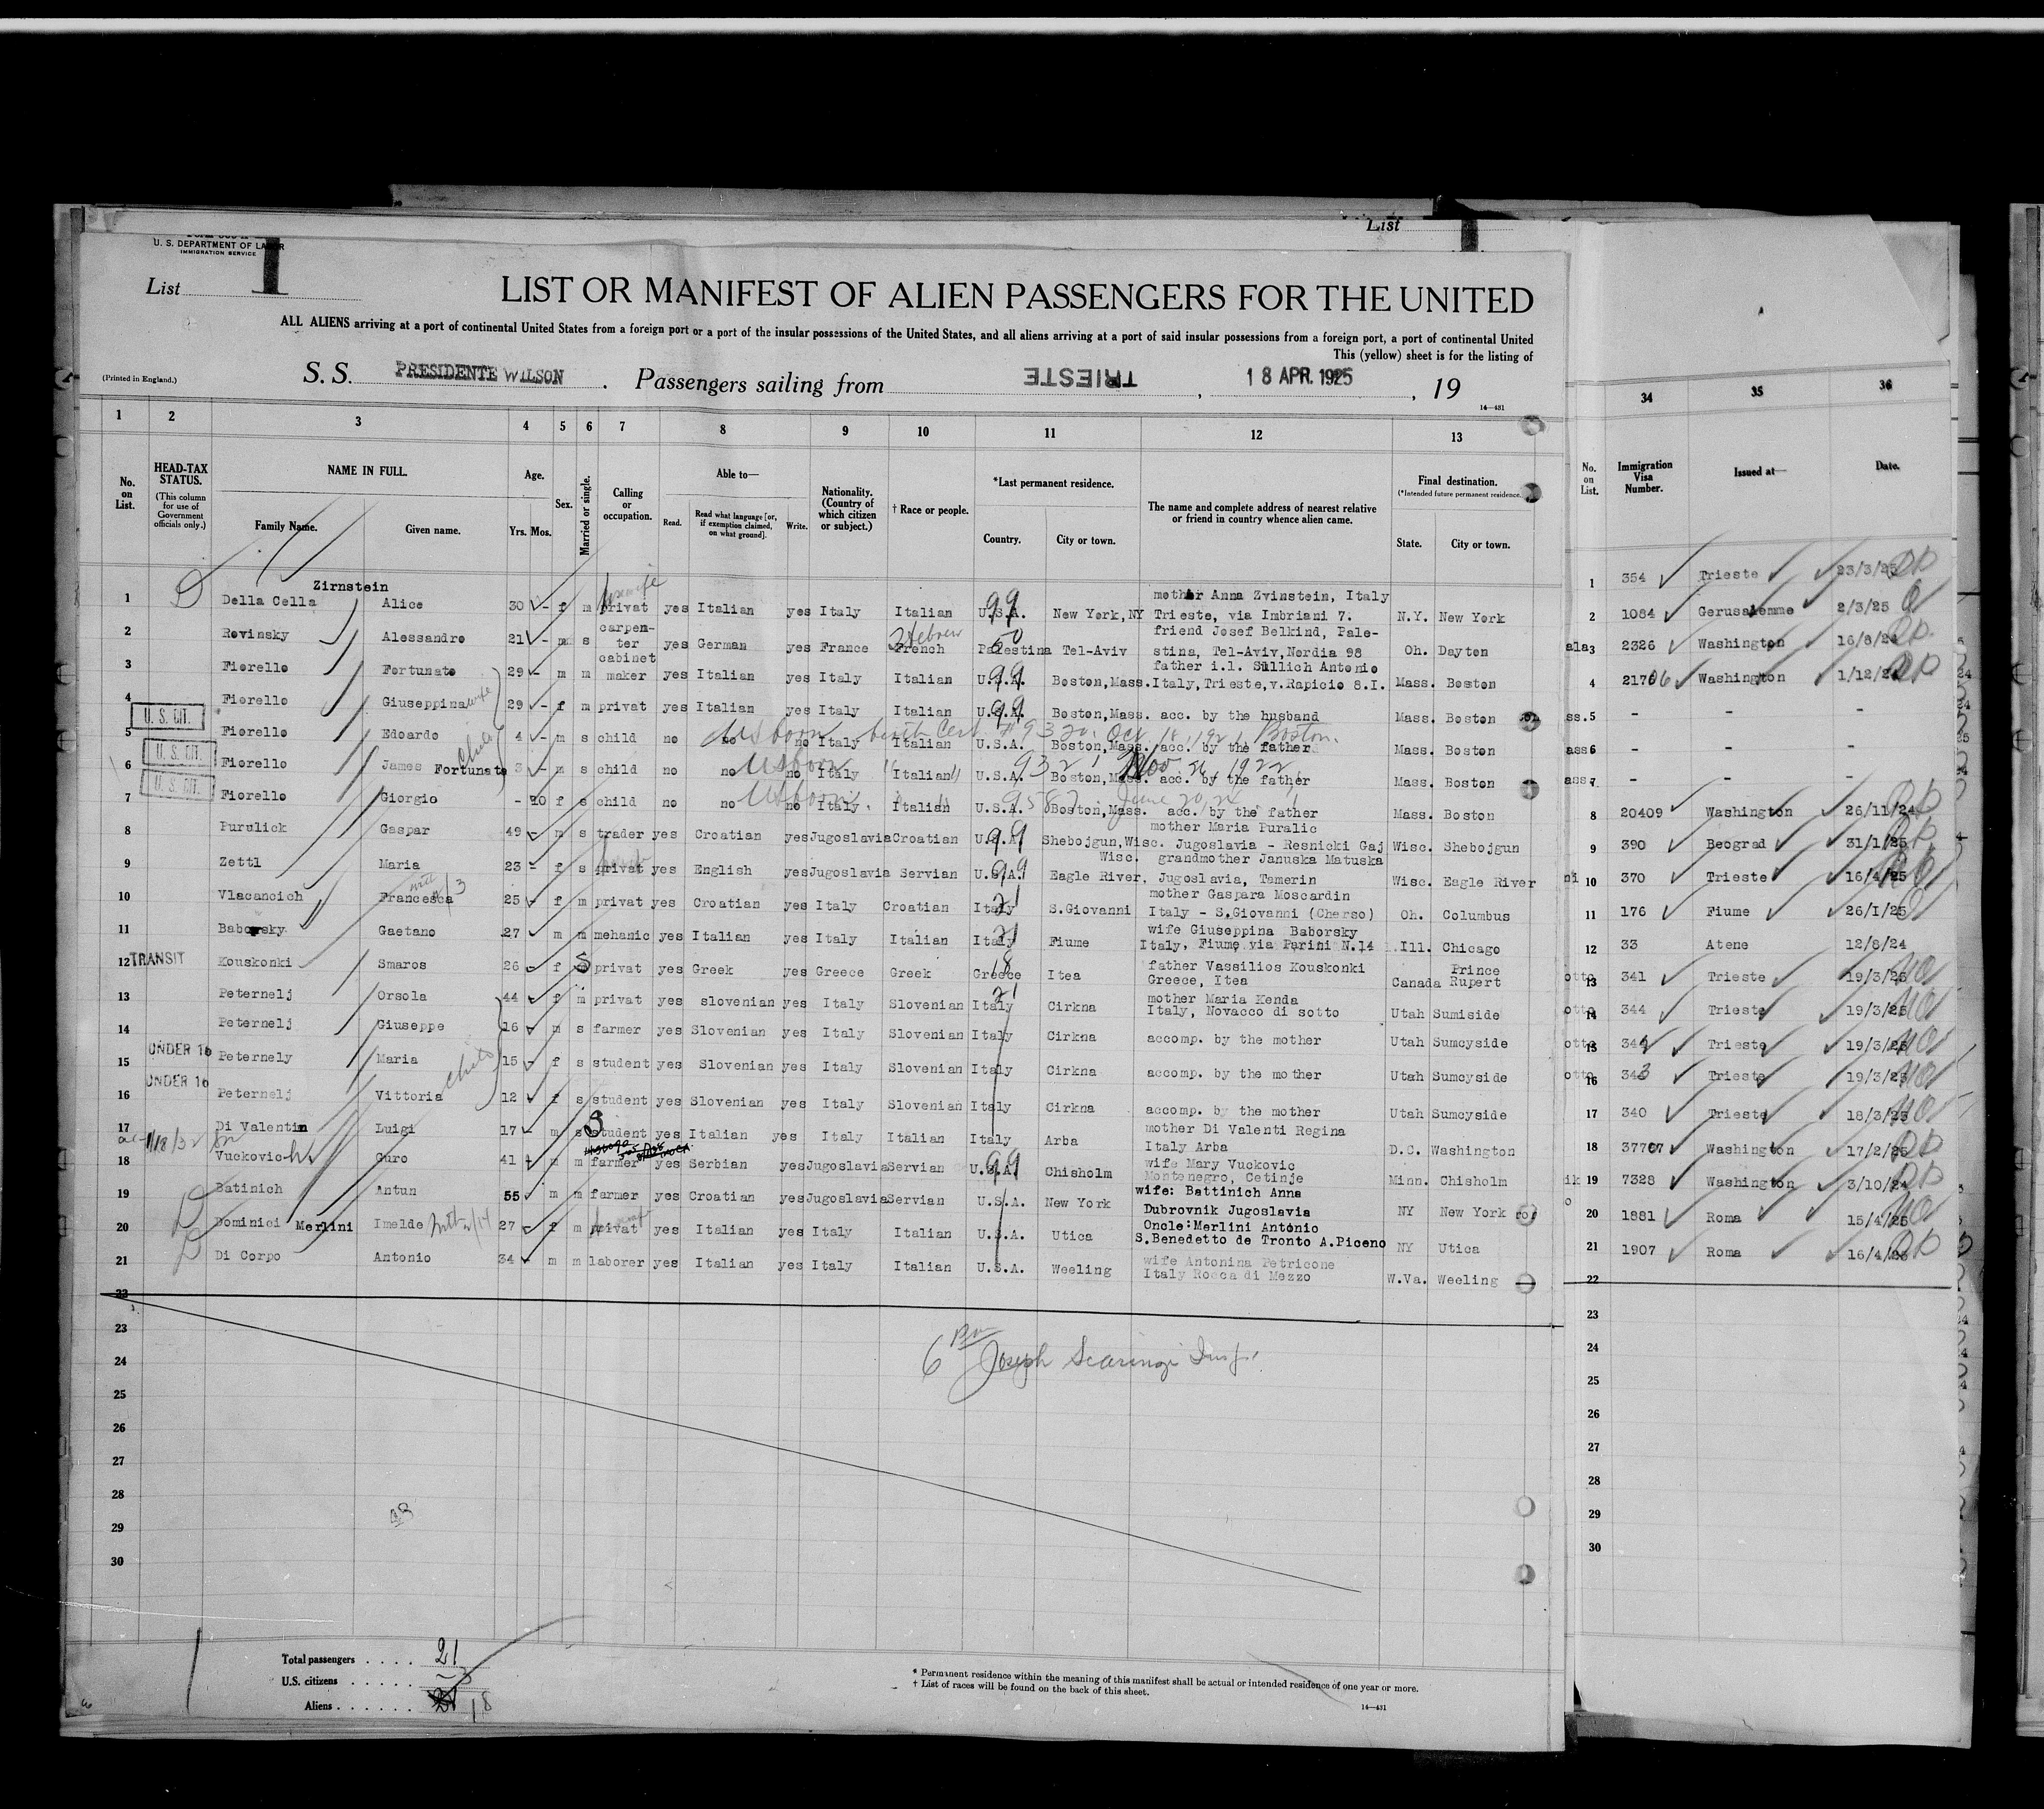 List
U. S. DEPARTMENT OF LABOR
IMMIGRATION SERVICE
List 1
LIST OR MANIFEST OF ALIEN PASSENGERS FOR THE UNITED
ALL ALIENS arriving at a port of continental United States from a foreign port or a port of the insular possessions of the United States, and all aliens arriving at a port of said insular possessions from a foreign port, a port of continental United
This (yellow) sheet is for the listing of
(Printed in England.) S. S. PRESIDENTE WILSON . Passengers sailing from TRIESTE , 18 APR. 1925 , 19
14—431
1 2 3 4 5 6 7 8 9 10 11 12 13 34 35 36
No. on List. HEAD-TAX STATUS. (This column for use of Government officials only.) NAME IN FULL. Family Name. Given name. Age. Yrs. Mos. Sex. Married or single. Calling or occupation. Able to— Read. Read what language [or, if exemption claimed, on what ground]. Write. Nationality. (Country of which citizen or subject.) † Race or people. *Last permanent residence. Country. City or town. The name and complete address of nearest relative or friend in country whence alien came. Final destination. (*Intended future permanent residence. State. City or town. No. on List. Immigration Visa Number. Issued at— Date.
Zirnstein
1 Della Cella Alice 30 - f m privat yes Italian yes Italy Italian U.S.A. 99 New York,NY mother Anna Zvinstein, Italy Trieste, via Imbriani 7. N.Y. New York 1 354 Trieste 23/3/25
2 Rovinsky Alessandro 21 - m s carpen- ter yes German yes France French Hebrew Palestina Tel-Aviv friend Josef Belkind, Pale- stina, Tel-Aviv,Nordia 98 Oh. Dayton 2 1084 Gerusalemme 2/3/25
3 Fiorello Fortunato 29 - m m cabinet maker yes Italian yes Italy Italian U.S.A. 99 Boston,Mass. father i.l. Sullich Antonio Italy,Trieste,v.Rapicio 8.I. Mass. Boston 3 2326 Washington 16/8/24
4 Fiorello Giuseppina wife 29 - f m privat yes Italian yes Italy Italian U.S.A. 99 Boston,Mass. acc. by the husband Mass. Boston 4 21706 Washington 1/12/24
U. S. CIT.
5 Fiorello Edoardo 4 - m s child no no no Italy Italian U.S.A. Boston,Mass. acc. by the father Mass. Boston 5 - - -
US born birth Cert # 9320. Oct 18, 1921 Boston.
U. S. CIT.
6 Fiorello James Fortunato 3 - m s child no no no Italy Italian U.S.A. Boston,Mass. acc. by the father Mass. Boston 6 - - -
US born 932 Nov 26 1922
U. S. CIT.
7 Fiorello Giorgio - 10 f s child no no no Italy Italian U.S.A. Boston,Mass. acc. by the father Mass. Boston 7 - - -
US born June 20, 24
8 Purulick Gaspar 49 - m s trader yes Croatian yes Jugoslavia Croatian U.S.A. 99 Shebojgun,Wisc. mother Maria Puralic Jugoslavia - Resnicki Gaj Wisc. Shebojgun 8 20409 Washington 26/11/24
9 Zettl Maria 23 - f s privat yes English yes Jugoslavia Servian U.S.A. 99 Wisc. Eagle River, grandmother Januska Matuska Jugoslavia, Temerin Wisc. Eagle River 9 390 Beograd 31/1/25
10 Vlacancich Francesca 25 - f m privat yes Croatian yes Italy Croatian Italy 21 S.Giovanni mother Gaspara Moscardin Italy - S.Giovanni (Cherso) Oh. Columbus 10 370 Trieste 16/4/25
11 Baborsky Gaetano 27 m m mehanic yes Italian yes Italy Italian Italy 21 Fiume wife Giuseppina Baborsky Italy, Fiume via Parini N.14 Ill. Chicago 11 176 Fiume 26/I/25
12 TRANSIT Kouskonki Smaros 26 - f S privat yes Greek yes Greece Greek Greece 18 Itea father Vassilios Kouskonki Greece, Itea Canada Prince Rupert 12 33 Atene 12/8/24
13 Peternelj Orsola 44 f m privat yes slovenian yes Italy Slovenian Italy 21 Cirkna mother Maria Kenda Italy, Novacco di sotto Utah Sumiside 13 341 Trieste 19/3/25
14 Peternelj Giuseppe 16 m s farmer yes Slovenian yes Italy Slovenian Italy Cirkna accomp. by the mother Utah Sumcyside 14 344 Trieste 19/3/25
UNDER 16
15 Peternely Maria 15 f s student yes Slovenian yes Italy Slovenian Italy Cirkna accomp. by the mother Utah Sumcyside 15 342 Trieste 19/3/25
UNDER 16
16 Peternelj Vittoria 12 f s student yes Slovenian yes Italy Slovenian Italy Cirkna accomp. by the mother Utah Sumcyside 16 343 Trieste 19/3/25
17 Di Valentin Luigi 17 - m s student yes Italian yes Italy Italian Italy Arba mother Di Valenti Regina Italy Arba D.C. Washington 17 340 Trieste 18/3/25
18 Vuckovich Guro 41 m m farmer yes Serbian yes Jugoslavia Servian U.S.A. 99 Chisholm wife Mary Vuckovic Montenegro, Cetinje Minn. Chisholm 18 37707 Washington 17/2/25
19 Batinich Antun 55 m m farmer yes Croatian yes Jugoslavia Servian U.S.A. New York wife: Battinich Anna Dubrovnik Jugoslavia NY New York 19 7328 Washington 3/10/24
20 Dominici Merlini Imelde 27 - f m privat yes Italian yes Italy Italian U.S.A. Utica Oncle:Merlini Antonio S.Benedetto de Tronto A.Piceno NY Utica 20 1881 Roma 15/4/25
21 Di Corpo Antonio 34 - m m laborer yes Italian yes Italy Italian U.S.A. Weeling wife Antonina Petricone Italy Rocca di Mezzo W.Va. Weeling 21 1907 Roma 16/4/25
22 22
23 23
24 24
6 Joseph Scaringi Insp.
25 25
26 26
27 27
28 28
29 29
30 30
Total passengers . . . . 21
U.S. citizens . . . . . 3
Aliens . . . . . . 18
* Permanent residence within the meaning of this manifest shall be actual or intended residence of one year or more.
† List of races will be found on the back of this sheet.
14—431